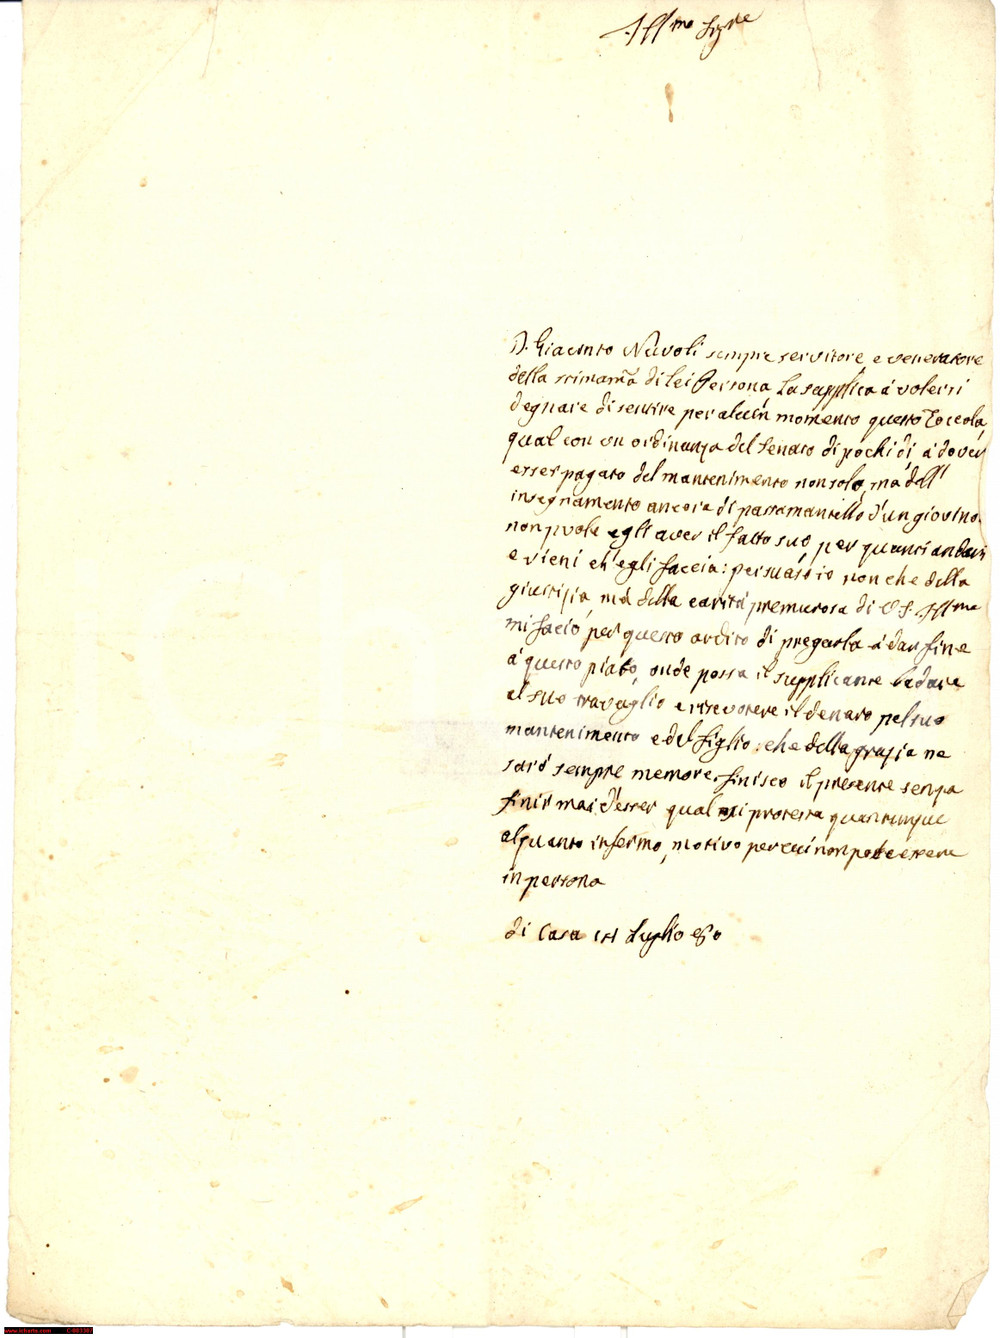 Ill.mo Sig.re
D. Giacinto Nuvoli sempre servitore, e veneratore
della stimam.a di lei Persona, La supplica á volersi
degnare di sentire per alcún momento questo Toccola,
qual con un ordinanza del Senato di pochi dí á dover
esser pagato del mantenimento non solo, má dell'
insegnamento ancora di passamantello d'un giovino
non puole egli aver il fatto suo per quanti andari
e vieni ch'egli faccia: persuasso io non che della
giustizia, má della caritá premurosa di V. S. Ill.ma
mi facio per questo ardito di pregarla á dar fine
á questo piato, onde possa il supplicante badare
al suo travaglio e riscuotere il denaro pel suo
mantenimento e del figlio: che della grazia ne
saró sempre memore. finisco il presente senza
finir mai d'esser qual mi protesta quantunque
alquanto infermo, motivo per cui non potè essere
in persona
di Casa Luglio